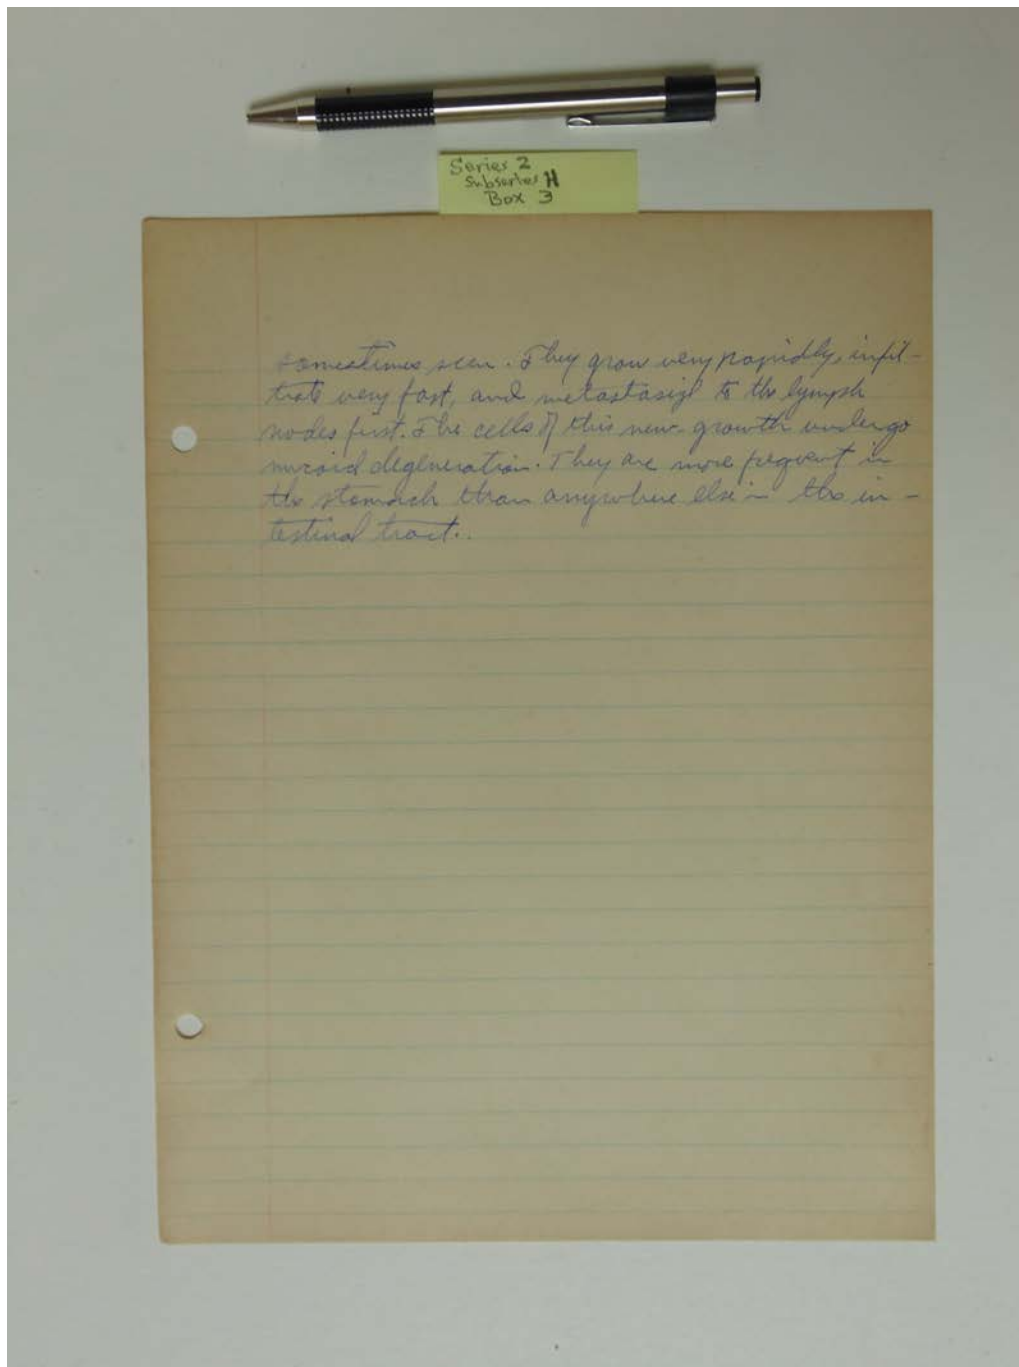 Series 2
Subseries H
Box 3
sometimes seen. They grow very rapidly, infil-
trate very fast, and metastasize to the lymph
nodes first. The cells of this new-growth undergo
mucoid degeneration. They are more frequent in
the stomach than anywhere else in the in-
testinal tract..